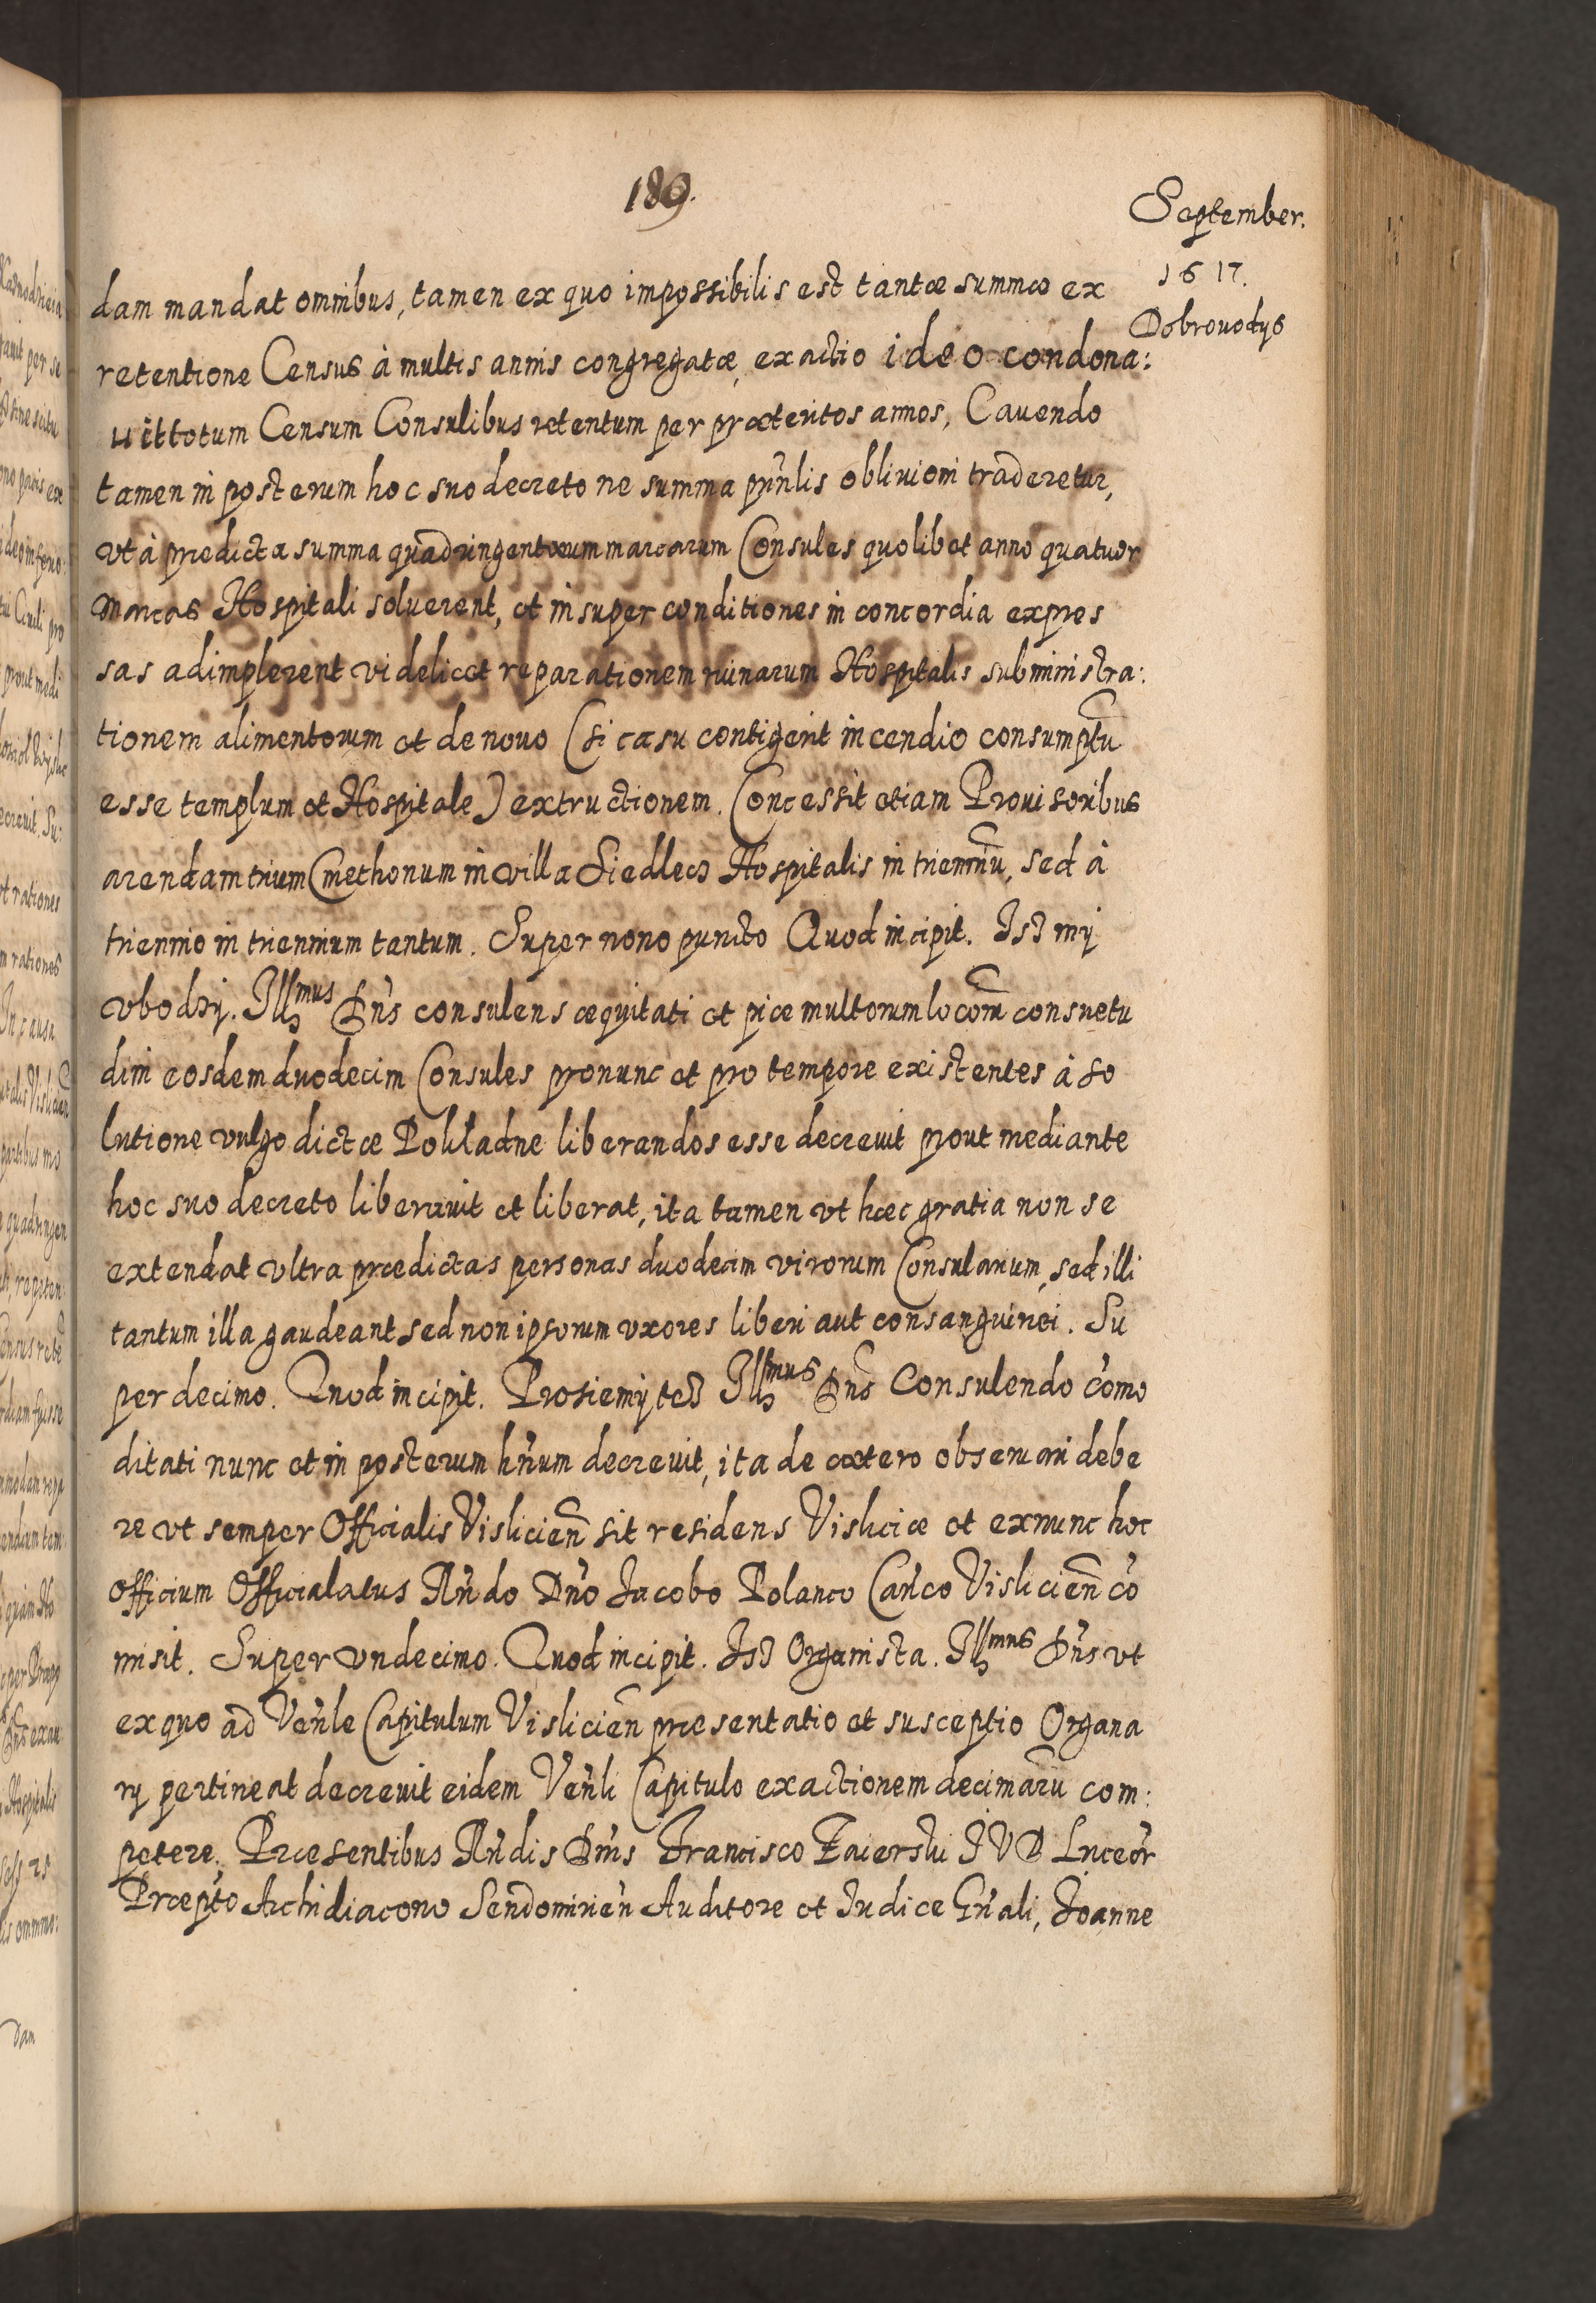 189.
September.
1617.
Dobrouodys
dam mandat omnibus, tamen ex quo impossibilis est tantæ summæ ex
retentione Census à multis annis congregatæ, exactio ideo condona:
uit totum Censum Consulibus retentum per præteritos annos, Cauendo
tamen in posterum hoc suo decreto ne summa prin̄lis obliuioni traderetur,
vt à prædicta summa quadringentorum marcarum Consules quolibet anno quatuor
marcas Hospitali soluerent, et insuper conditiones in concordia expres
sas adimplerent videlicet reparationem ruinarum Hospitalis subministra:
tionem alimentorum et de nouo (si casu contigerit incendio consumptū
esse templum et Hospitale) extructionem. Concessit etiam Prouisoribus
arendam trium Cmethonum in villa Siedlec Hospitalis in trienniū, sed à
triennio in triennium tantum. Super nono puncto Quod incipit. Jsz my
vbodzy. Jllmus Dn̄s consulens æquitati et piæ multorum locorū consuetu
dini eosdem duodecim Consules pronunc et pro tempore existentes à so
lutione vulgo dictæ Pokładne liberandos esse decreuit prout mediante
hoc suo decreto liberauit et liberat, ita tamen vt hæc gratia non se
extendat vltra prædictas personas duodecim virorum Consularium, sed illi
tantum illa gaudeant sed non ipsorum vxores liberi aut consanguinei. Su
per decimo. Quod incipit. Prosiemy tesz Jllmus Dn̄s Consulendo com̄o
ditati nunc et in posterum hn̄um decreuit, ita de cætero obseruari debe
re vt semper Officialis Vislicien̄ sit residens Visliciæ et exnunc hoc
officium Officialatus Rn̄do Dn̄o Jacobo Polanco Can̄co Vislicien̄ cō
misit. Super vndecimo. Quod incipit. Jsz Organista. Jllmus Dn̄s vt
ex quo ad Ven̄le Capitulum Vislicien̄ præsentatio et susceptio Organa
rij pertineat decreuit eidem Ven̄li Capitulo exactionem decimarū com:
petere. Præsentibus Rn̄dis Dn̄is Francisco Zaierski J V D Luceor̄
Præpto Archidiacono Sendomirien̄ Auditore et Judice Gn̄ali, Joanne